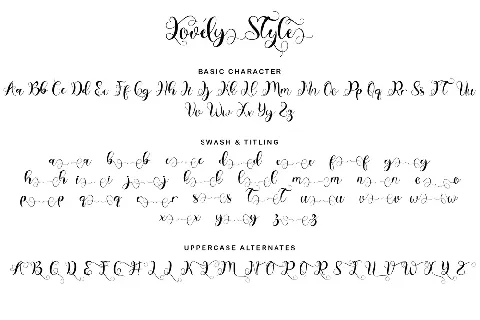 Lovely Style
BASIC CHARACTER
Aa Bb Cc Dd Ee Ff Gg Hh Ii Jj Kk Ll Mm Nn Oo Pp Qq Rr Ss Tt Uu
Vv Ww Xx Yy Zz
SWASH & TITLING
a a b b c c d d e e f f g g
h h i i j j k k l l m m n n o o
p p q q r r s s t t u u v v w w
x x y y z z
UPPERCASE ALTERNATES
A B C D E F G H I J K L M N O P Q R S T U V W X Y Z